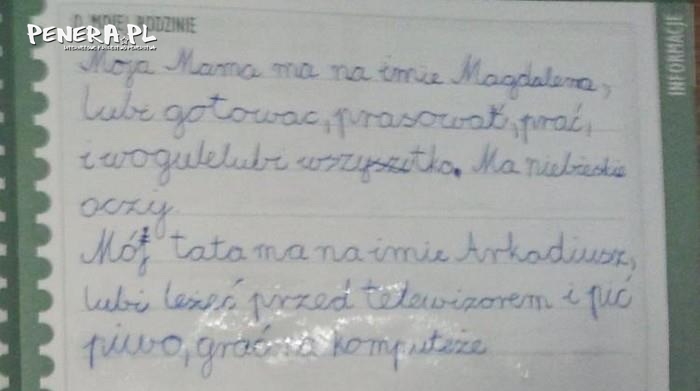 PENERA.PL
O MOJEJ RODZINIE
INFORMACJE
Moja Mama ma na imie Magdalena,
lubi gotowac, prasować, prać,
i wogule lubi wszyszitko. Ma niebieskie
oczy
Mój tata ma na imie Arkadiusz,
lubi leżeć przed telewizorem i pić
piwo, grać na komputeże